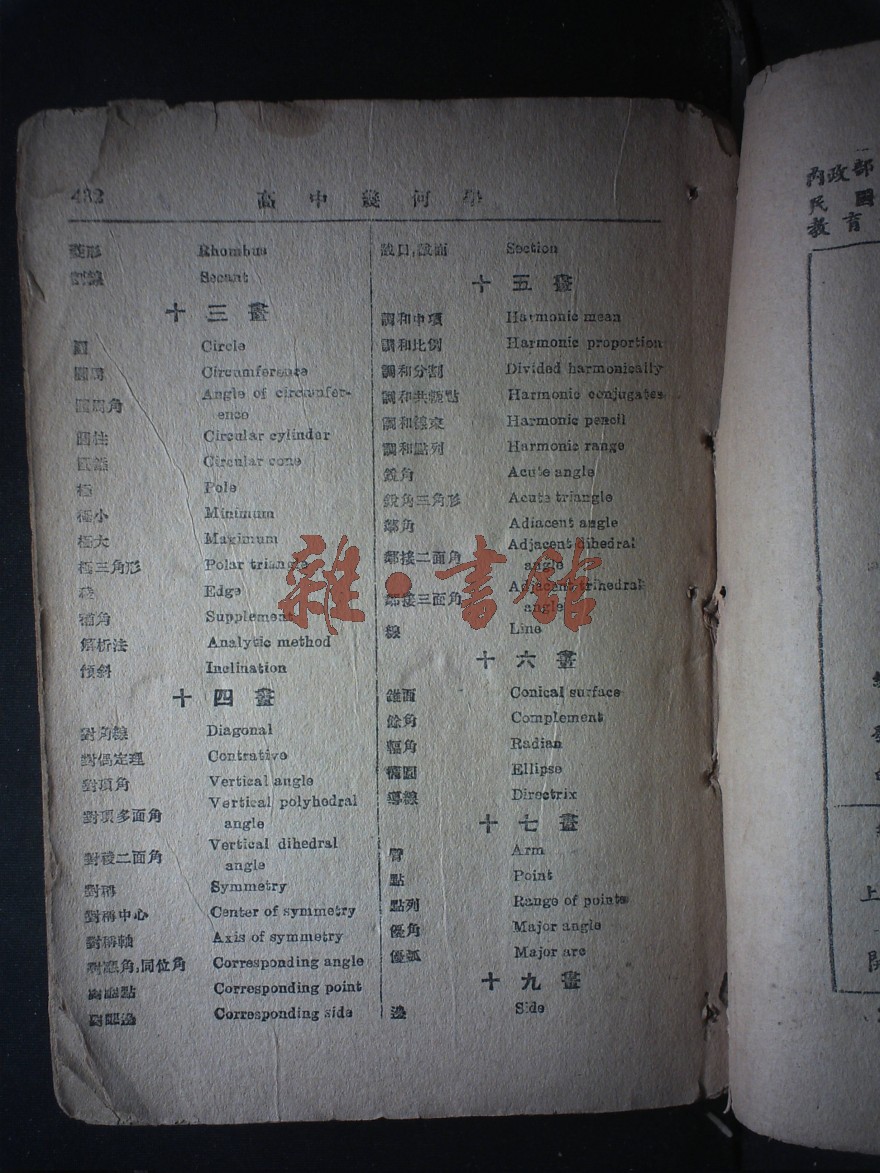 432 高中幾何學
菱形 Rhombus
割線 Secant
十三畫
圓 Circle
圓周 Circumference
圓周角 Angle of circumfer-
ence
圓柱 Circular cylinder
圓錐 Circular cone
極 Pole
極小 Minimum
極大 Maximum
極三角形 Polar triangle
稜 Edge
補角 Supplement
解析法 Analytic method
傾斜 Inclination
十四畫
對角線 Diagonal
對偶定理 Contrative
對頂角 Vertical angle
對頂多面角 Vertical polyhedral
angle
對稜二面角 Vertical dihedral
angle
對稱 Symmetry
對稱中心 Center of symmetry
對稱軸 Axis of symmetry
對應角,同位角 Corresponding angle
對應點 Corresponding point
對應邊 Corresponding side
截口,截面 Section
十五畫
調和中項 Harmonic mean
調和比例 Harmonic proportion
調和分割 Divided harmonically
調和共軛點 Harmonic conjugates
調和線束 Harmonic pencil
調和點列 Harmonic range
銳角 Acute angle
銳角三角形 Acute triangle
鄰角 Adiacent angle
鄰接二面角 Adjacent dihedral
angle
鄰接三面角 Adjacent trihedral
angle
線 Line
十六畫
錐面 Conical surface
餘角 Complement
輻角 Radian
橢圓 Ellipse
導線 Directrix
十七畫
臂 Arm
點 Point
點列 Range of points
優角 Major angle
優弧 Major arc
十九畫
邊 Side
雜·書館
內政部
民國
教育
上